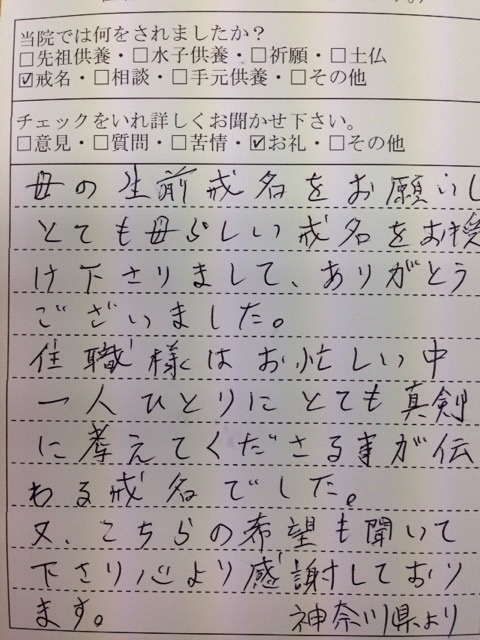 当院では何をされましたか？
□先祖供養・□水子供養・□祈願・□土仏
☑戒名・□相談・□手元供養・□その他
チェックをいれ詳しくお聞かせ下さい。
□意見・□質問・□苦情・☑お礼・□その他
母の生前戒名をお願いし
とても母らしい戒名をお授
け下さりまして、ありがとう
ございました。
住職様はお忙しい中
一人ひとりにとても真剣
に考えてくださる事が伝
わる戒名でした。
又、こちらの希望も聞いて
下さり心より感謝しており
ます。 神奈川県より